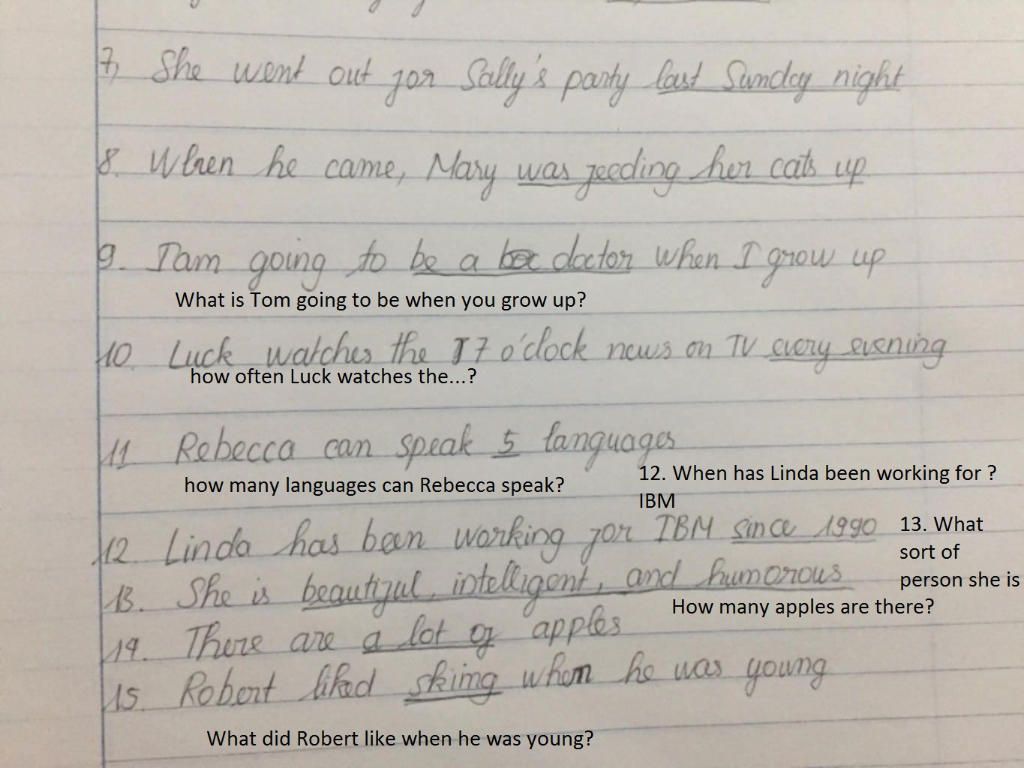 7, She went out for Sally's party last Sunday night
8. When he came, Mary was feeding her cats up
9. I am going to be a doctor when I grow up
What is Tom going to be when you grow up?
10. Luck watches the 7 o'clock news on TV every evening
how often Luck watches the...?
11 Rebecca can speak 5 languages
how many languages can Rebecca speak?
12. When has Linda been working for ?
IBM
12 Linda has been working for IBM since 1990
13. What
sort of
person she is
13. She is beautiful, intelligent, and humorous
How many apples are there?
14. There are a lot of apples
15. Robert liked skiing when he was young
What did Robert like when he was young?